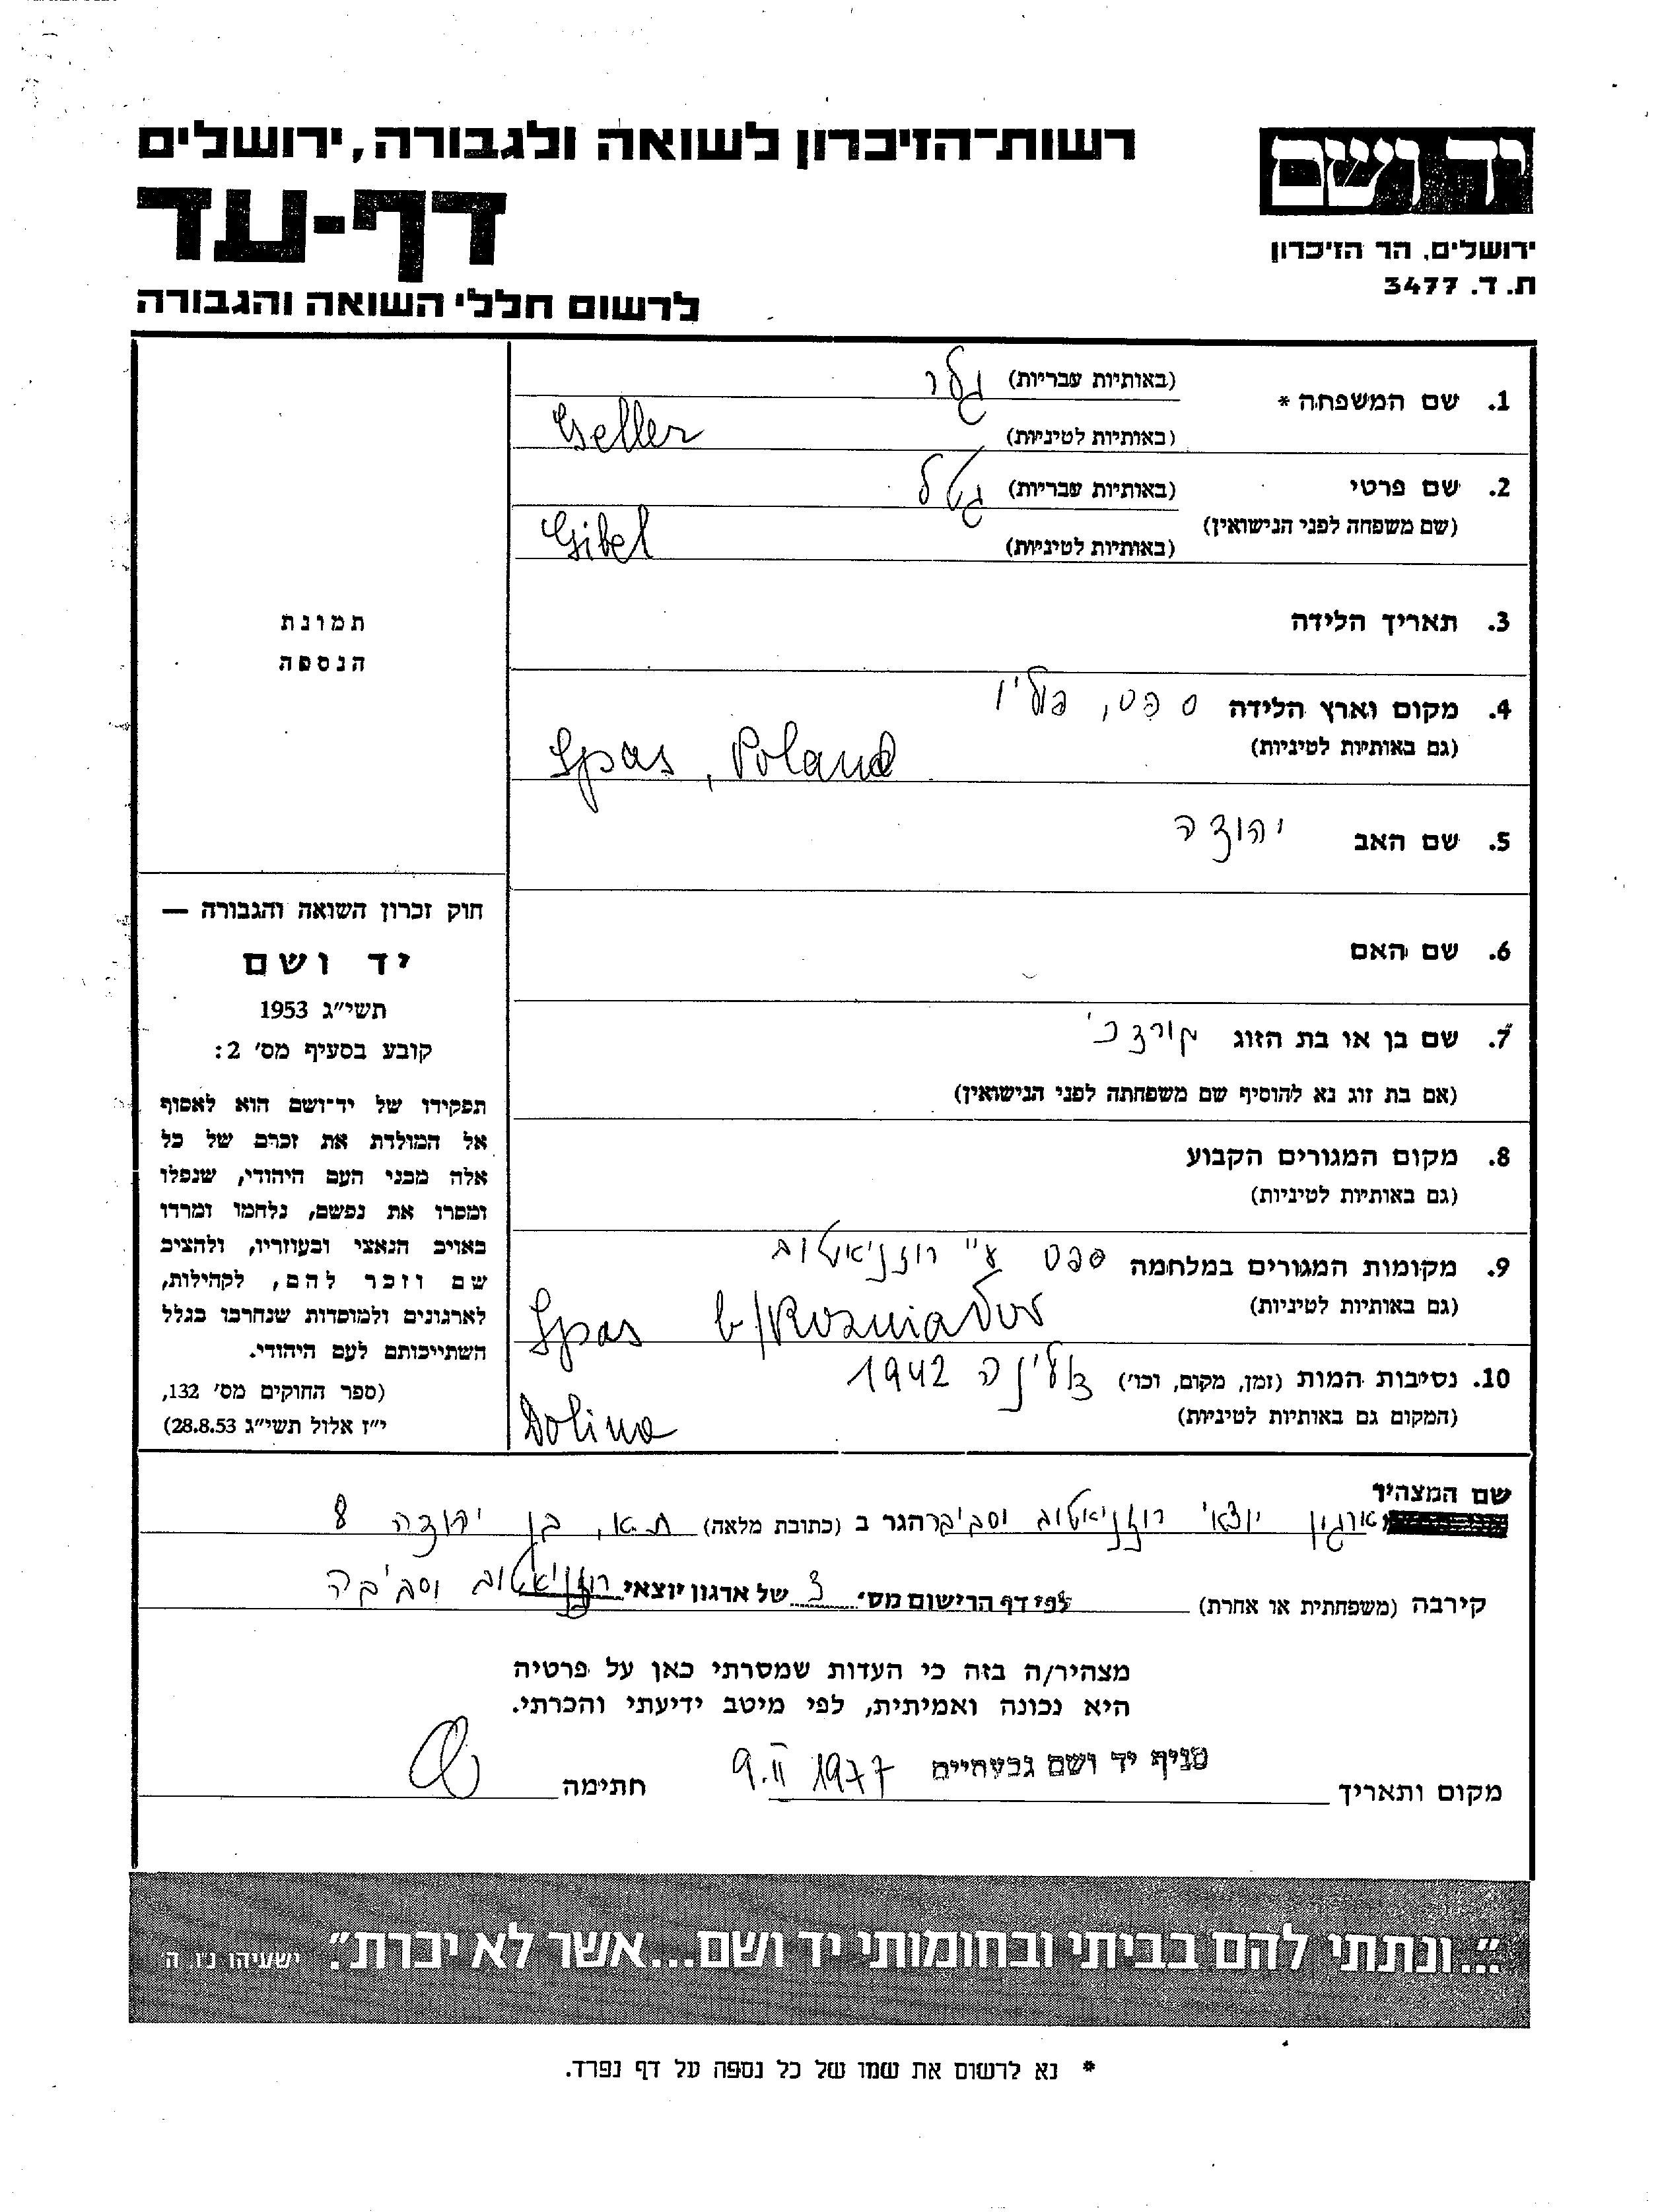 רשות־הזיכרון לשואה ולגבורה, ירושלים
דף-עד
לרשום חללי השואה והגבורה
יד ושם
ירושלים, הר הזיכרון
ת. ד. 3477
1. שם המשפחה * (באותיות עבריות) גלר
(באותיות לטיניות) Geller
2. שם פרטי (באותיות עבריות)
(שם משפחה לפני הנישואין) (באותיות לטיניות) Gibel
3. תאריך הלידה
4. מקום וארץ הלידה ספס, פולין
(גם באותיות לטיניות) Spas, Poland
5. שם האב יהודה
6. שם האם
7. שם בן או בת הזוג מורדכי
(אם בת זוג נא להוסיף שם משפחתה לפני הנישואין)
8. מקום המגורים הקבוע
(גם באותיות לטיניות)
9. מקומות המגורים במלחמה ספס ע"י רוזניאטוב
(גם באותיות לטיניות) Spas b/Rozniatov
10. נסיבות המות (זמן, מקום, וכו') דולינה 1942
(המקום גם באותיות לטיניות) Dolina
תמונת
הנספה
חוק זכרון השואה והגבורה —
יד ושם
תשי״ג 1953
קובע בסעיף מס׳ 2:
תפקידו של יד־ושם הוא לאסוף
אל המולדת את זכרם של כל
אלה מבני העם היהודי, שנפלו
ומסרו את נפשם, נלחמו ומרדו
באויב הנאצי ובעוזריו, ולהציב
שם וזכר להם, לקהילות,
לארגונים ולמוסדות שנחרבו בגלל
השתייכותם לעם היהודי.
(ספר החוקים מס׳ 132,
י״ז אלול תשי״ג 28.8.53)
שם המצהיר
ארגון יוצאי רוזניאטוב וסביב הגר ב (כתובת מלאה) ת.א. בן יהודה 8
קירבה (משפחתית או אחרת) לפי דף הרישום מס׳ 3 של ארגון יוצאי רוזניאטוב וסביבה
מצהיר/ה בזה כי העדות שמסרתי כאן על פרטיה
היא נכונה ואמיתית, לפי מיטב ידיעתי והכרתי.
מקום ותאריך סניף יד ושם גבעתיים 9.II 1977 חתימה
"...ונתתי להם בביתי ובחומותי יד ושם...אשר לא יכרת". ישעיהו נ״ו, ה׳
* נא לרשום את שמו של כל נספה על דף נפרד.